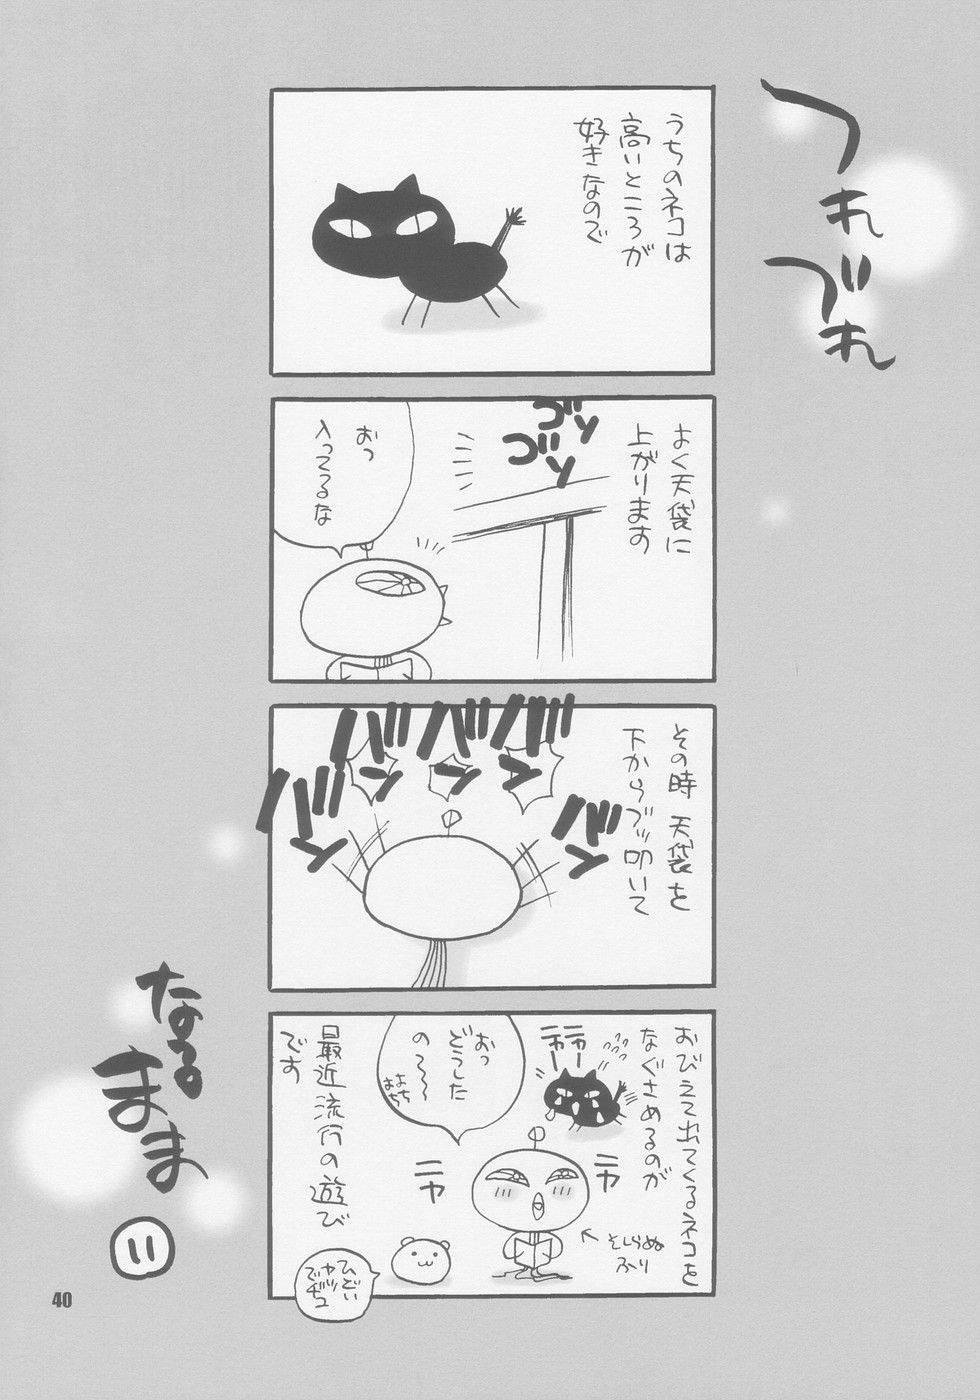 つれづれ
うちのネコは
高いところが
好きなので
よく天袋に
上がります
ゴソ
ゴソ
おっ
入ってるな
その時 天袋を
下からブッ叩いて
バン
バン
バン
バン
バン
おびえて出てくるネコを
なぐさめるのが
ニャー
ニャー
おっ
どうした
の〜〜
よちよち
ニヤ
ニヤ
←そしらぬ
ふり
最近流行の遊び
です
ひどい
ヤツ
でヂュ
なるまま
11
40